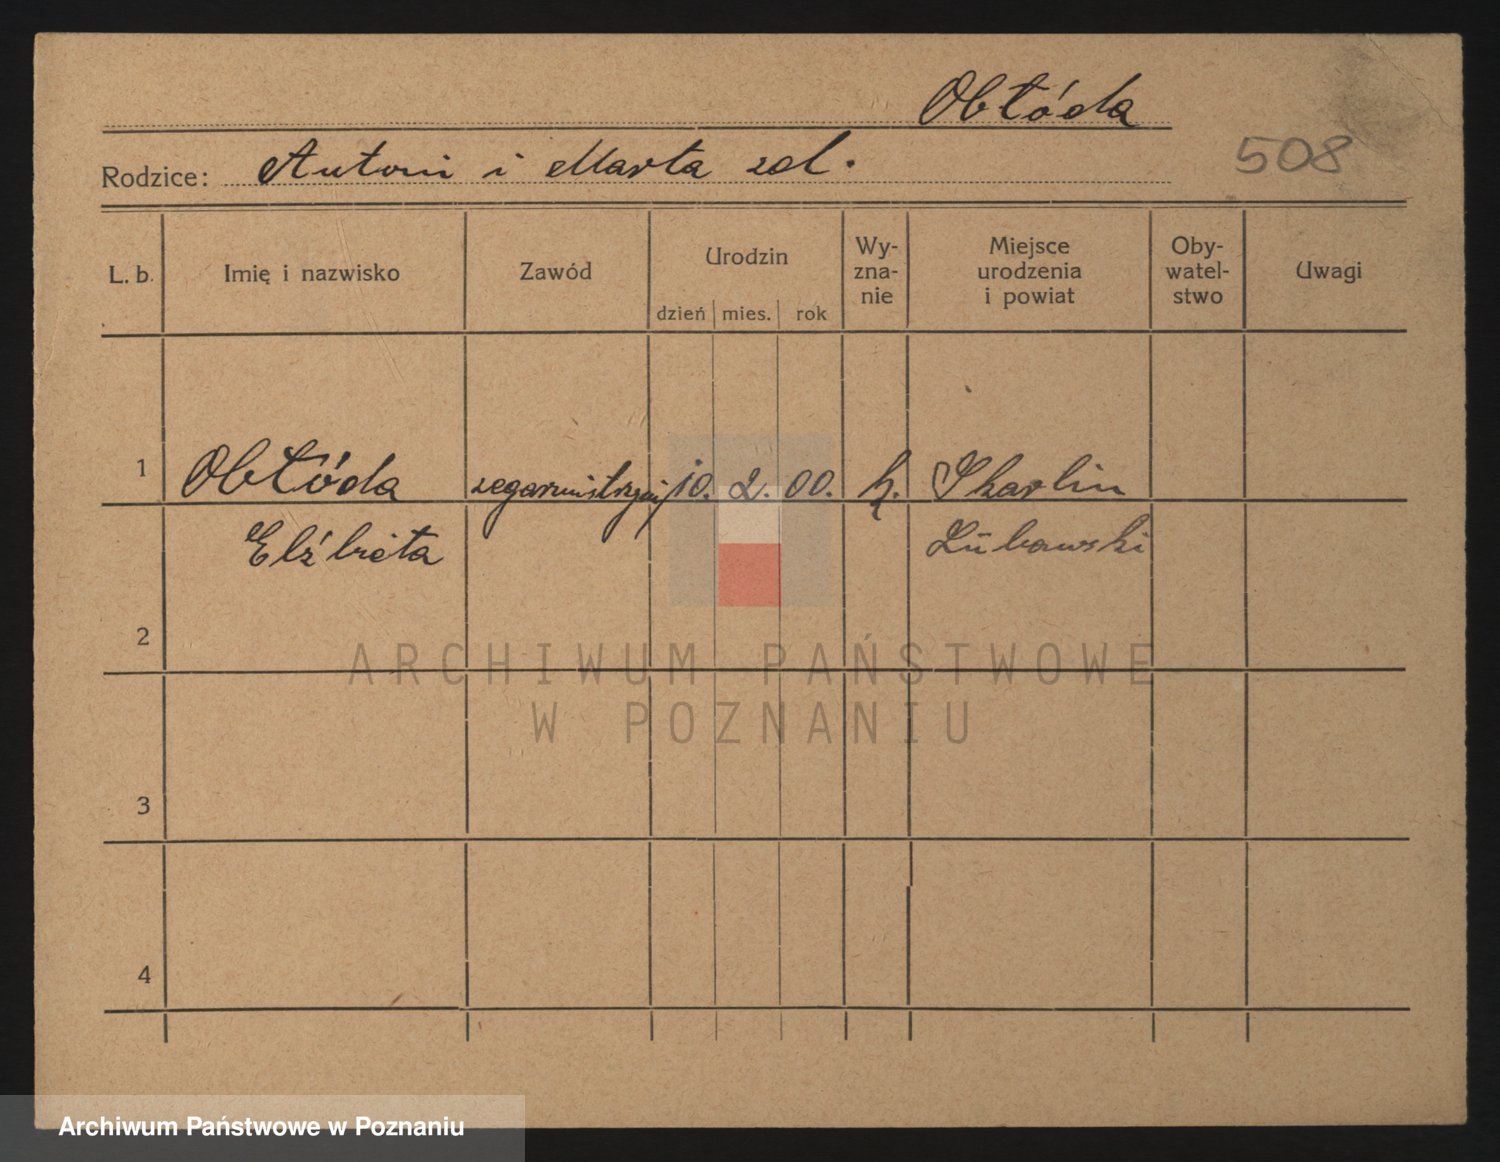 Obtóda
508
Rodzice: Antoni i Marta zd.
L. b. Imię i nazwisko Zawód Urodzin dzień mies. rok Wy-zna-nie Miejsce urodzenia i powiat Oby-watel-stwo Uwagi
1 Obtóda 10. 2. 00. k. Skarlin
Elżbieta Lubawski
2
3
4
ARCHIWUM PAŃSTWOWE
W POZNANIU
Archiwum Państwowe w Poznaniu